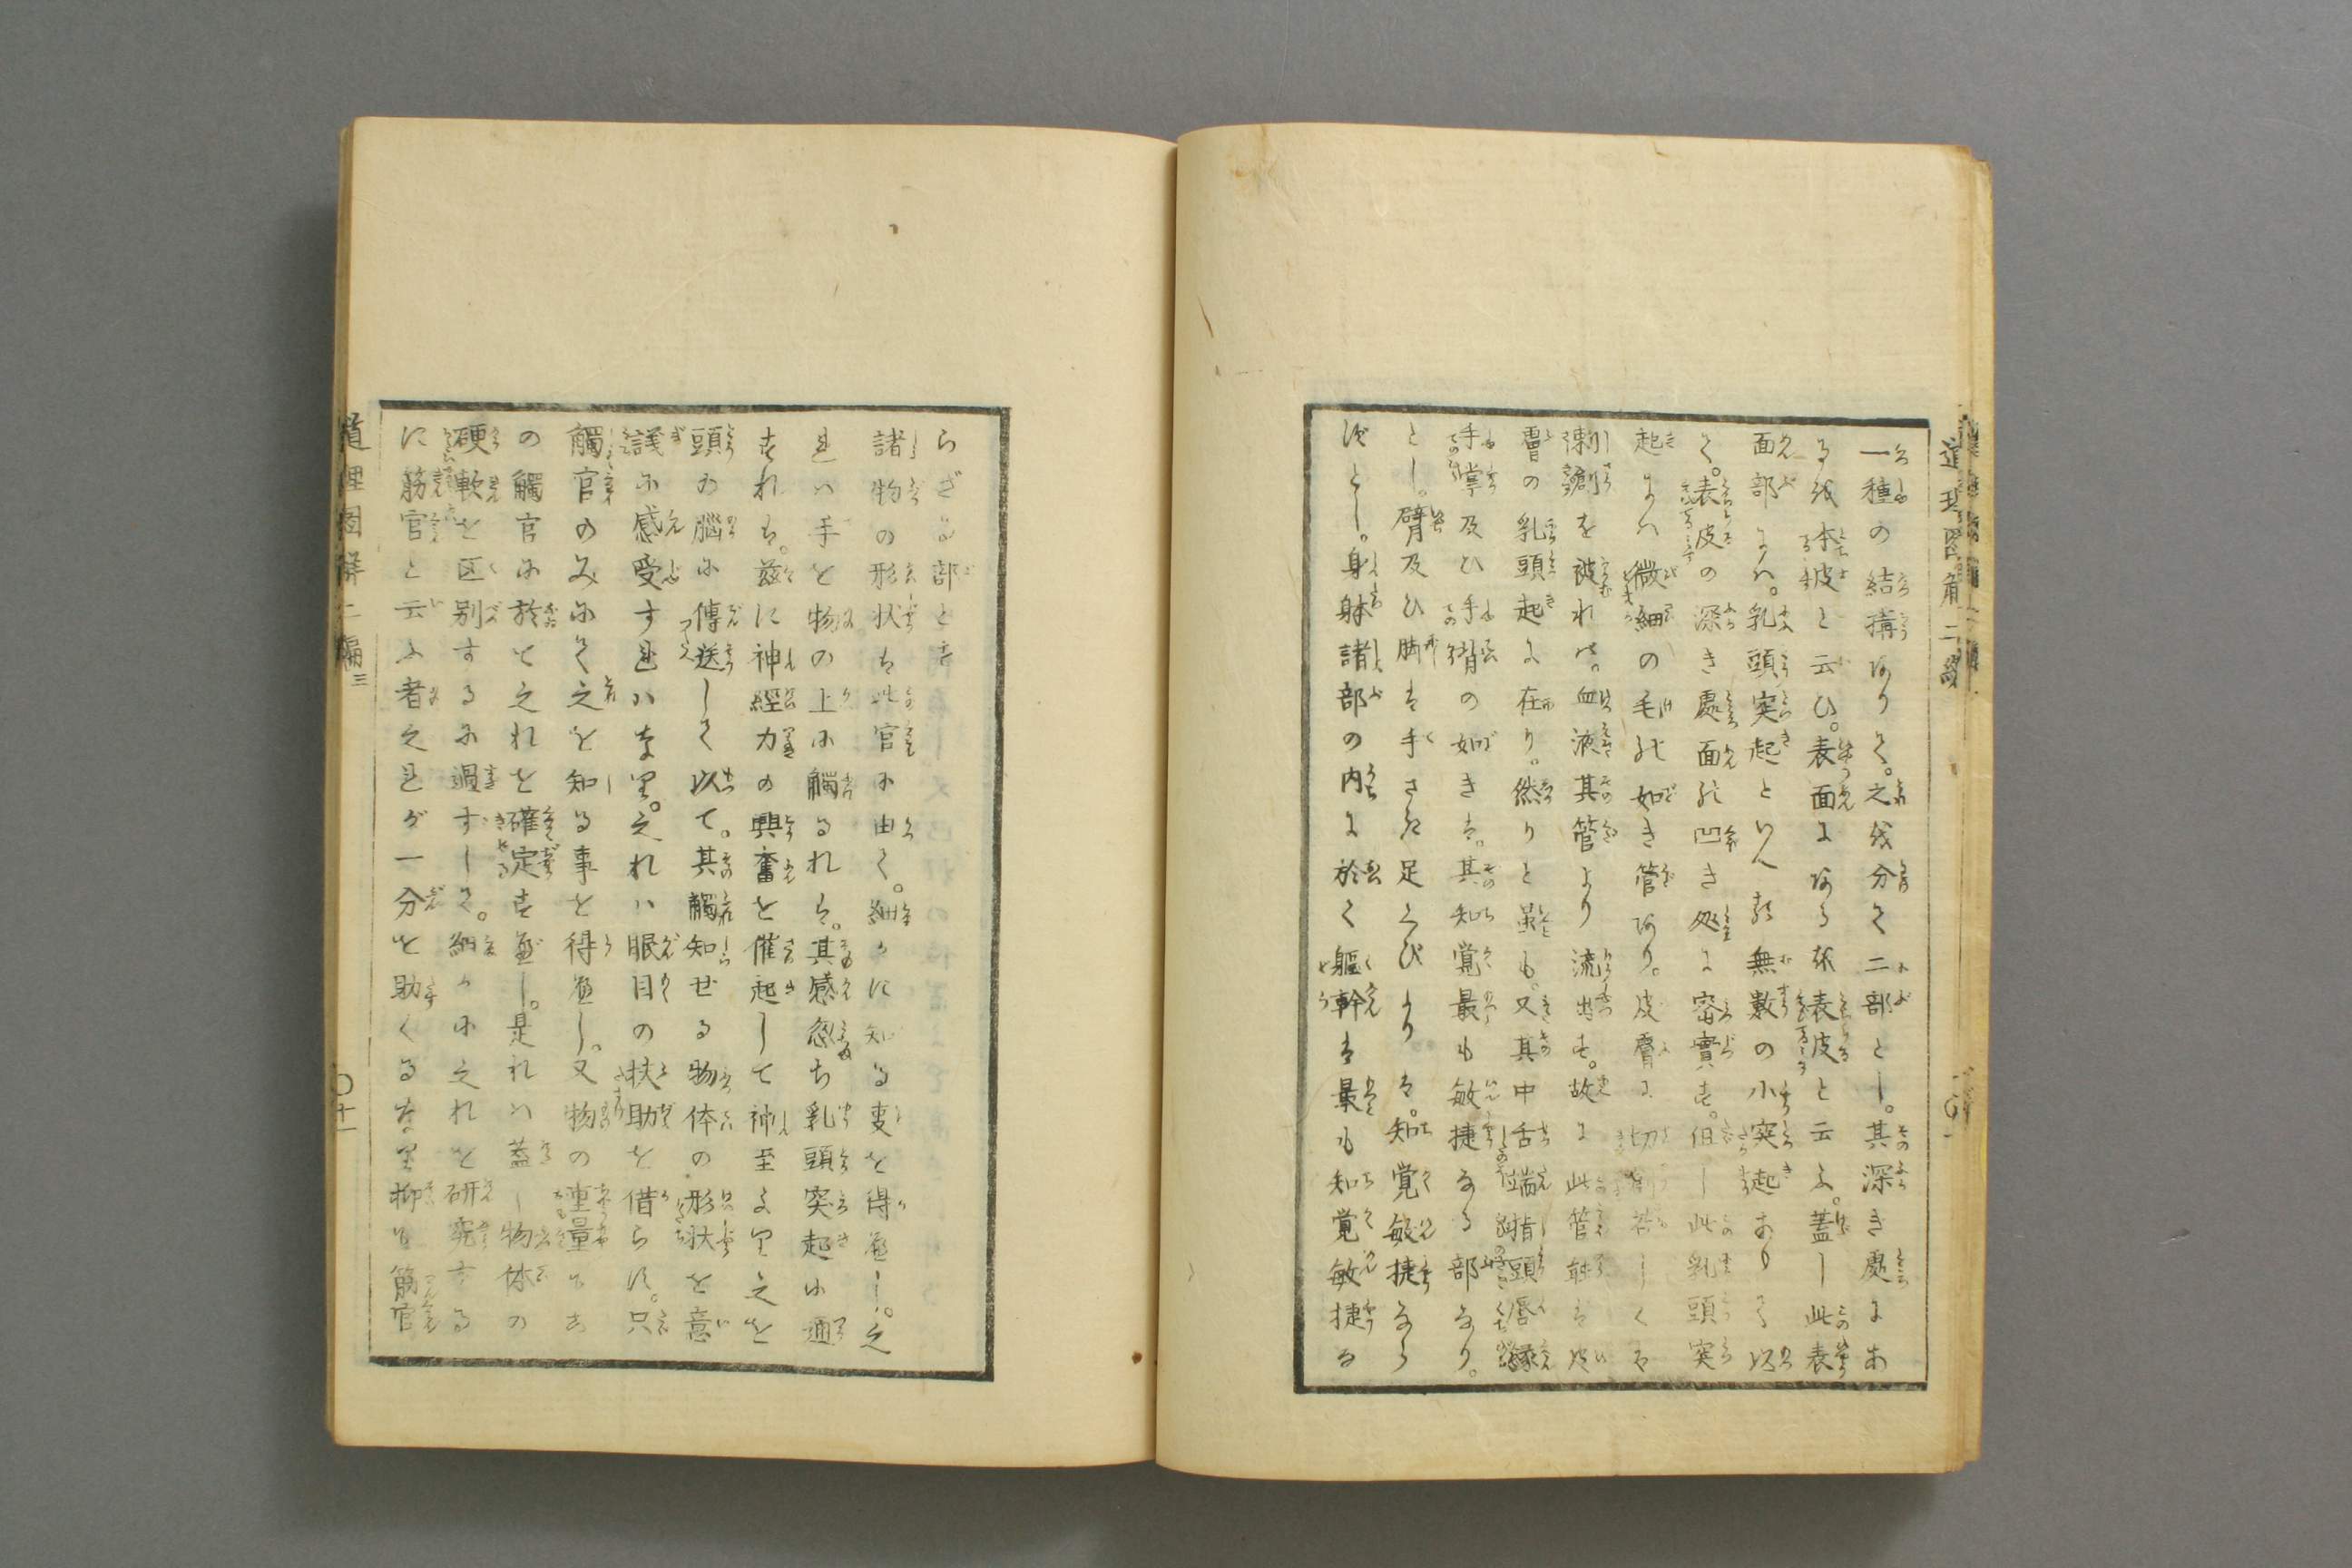 一種の結構ありて。之を分て二部とし。其深き處にあ
るを本皮と云ひ。表面にあるを表皮と云ふ。蓋し此表
面部には。乳頭突起といへる無数の小突起ありて以
て。表皮の深き處面の凹き処に密實す。但し此乳頭突
起には微細の毛の如き管あり。皮膚に切創若しくは
刺創を被れは。血液其管より流出す。故に此管
の乳頭起に在り。然りと虽も。又其中舌端指頭唇縁
手掌及ひ手背の如きは。其知覚最も敏捷なる部なり。
とし。臂及ひ脚は手さき足くびよりは。知覚敏捷なら
ずとし。身躰諸部の内に於て軀幹は最も知覚敏捷な
らざる部と
諸物の形状は此官に由て。細かに知る事を得べし。之
れハ手を物の上に觸るれは。其感忽ち乳頭突起に通
ずれは。茲に神經力の興奮を催起して神至より之を
頭の腦に傳送して以て。其觸知せる物体の形状を意
識に感受すれハなり。之れハ眼目の扶助を借らず。只
觸官のみにて之を知る事を得べし。又物の重量
の觸官に於て之れを確定すべし。是れハ蓋し物体の
硬軟を区別するに過ずして。細かに之れを研究する
に筋官と云ふ者之れが一分を助くるなり抑も筋官
道理図解二編三
〇十一